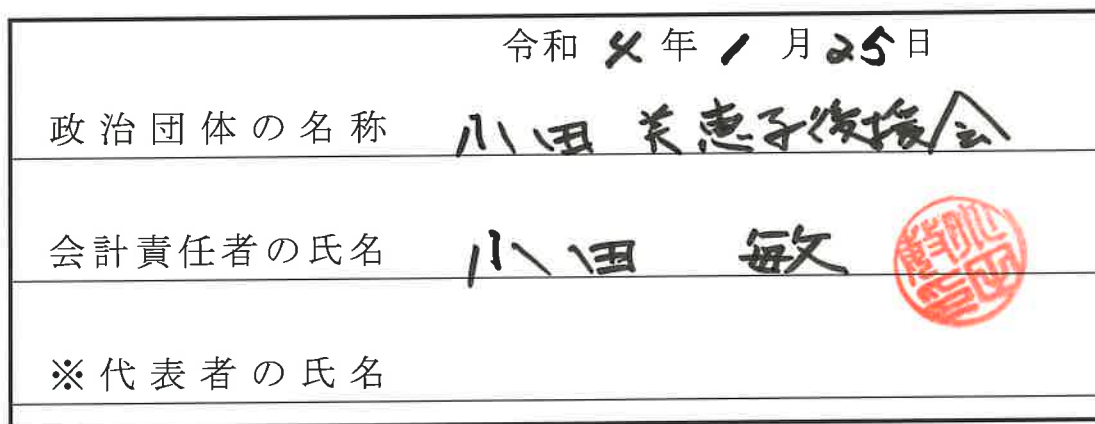 令和 4 年 1 月 25 日
政治団体の名称 小田 美恵子後援会
会計責任者の氏名 小田 敏
※代表者の氏名